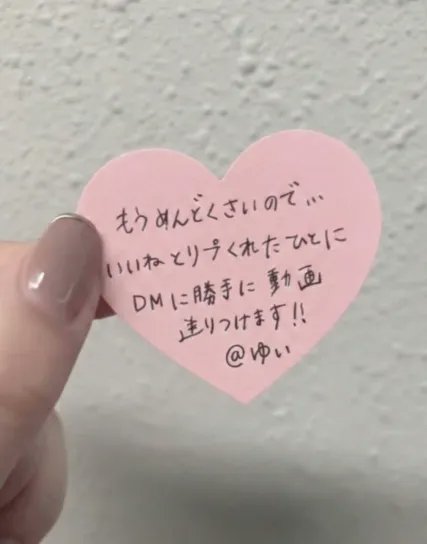 もうめんどくさいので...
いいねとリプくれたひとに
DMに勝手に動画
送りつけます!!
@ゆい